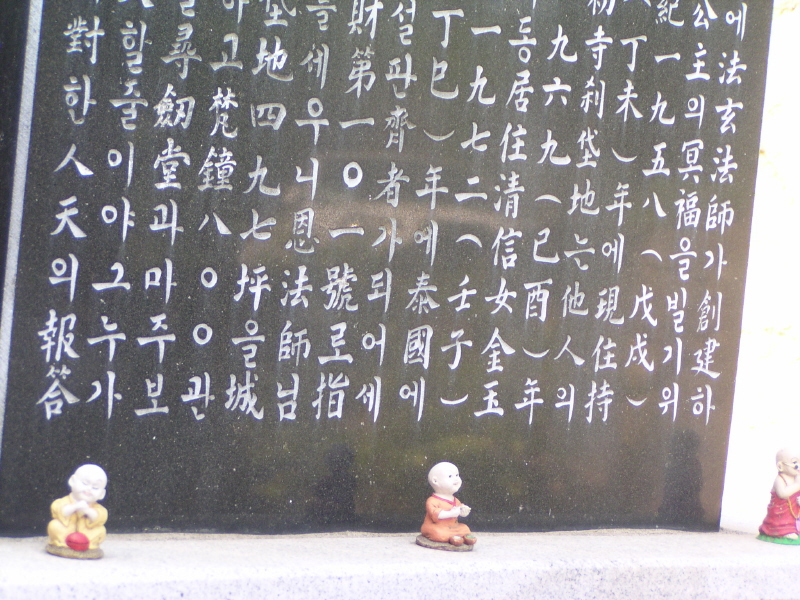 에法玄法師가創建하
公主의冥福을빌기위
紀一九五八(戊戌)
丁未)年에現住持
初寺刹垈地는他人의
九六九(已酉)年
등居住清信女金玉
一九七二(壬子)
丁巳)年에泰國에
설판齊者가되어세
財第一0一號로指
들세우니恩法師님
垈地四九七坪을城
하고梵鐘八00관
尋劒堂과마주보
할줄이야그누가
對한人天의報答